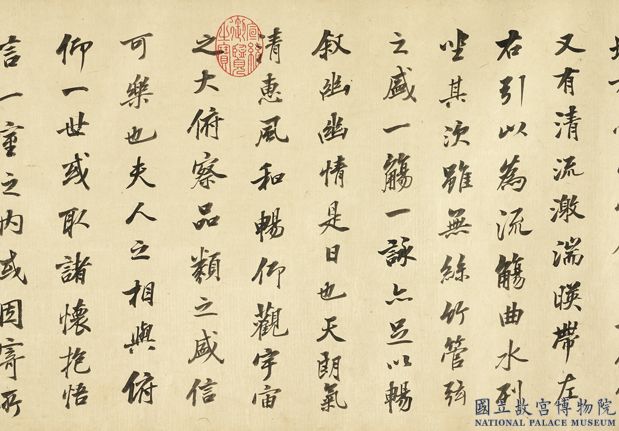 又有清流激湍暎帶左
右引以為流觴曲水列
坐其次雖無絲竹管弦
之盛一觴一詠亦足以暢
叙幽幽情是日也天朗氣
清惠風和暢仰觀宇宙
之大俯察品類之盛信
可樂也夫人之相與俯
仰一世或取諸懷抱悟
言一室之内或因寄所
宣統御覽之寶
國立故宮博物院
NATIONAL PALACE MUSEUM